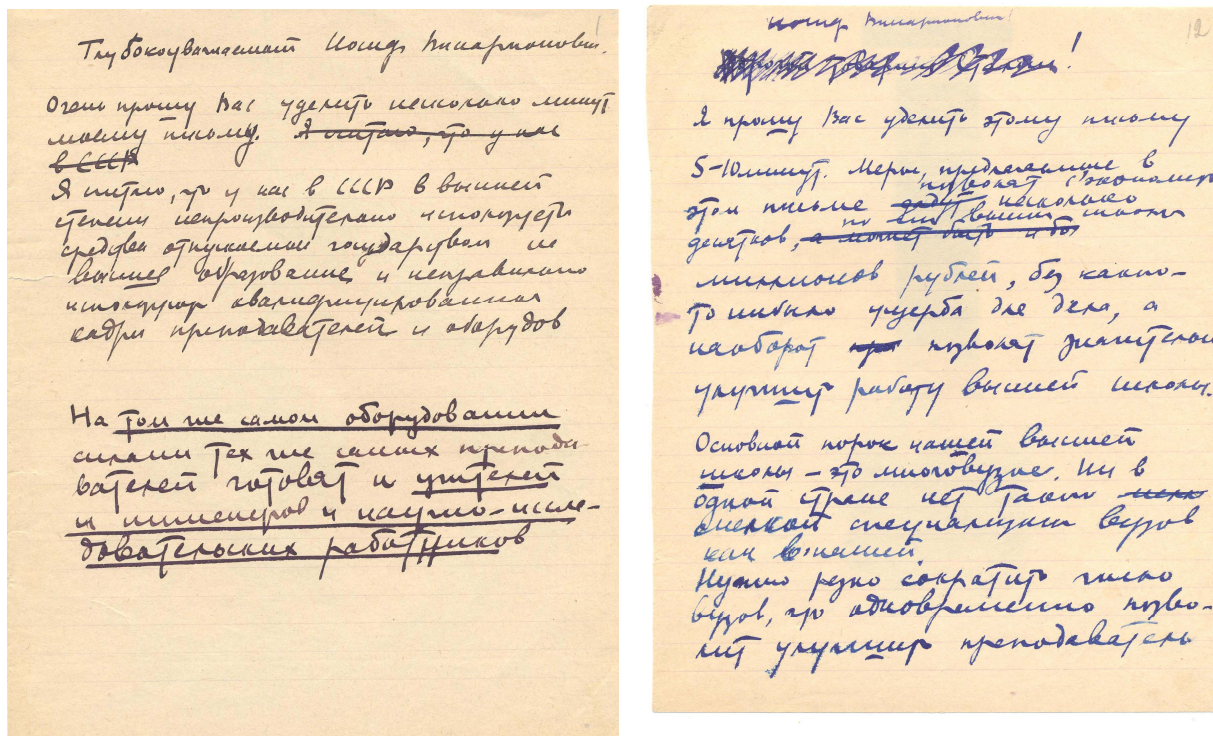 1
Глубокоуважаемый Иосиф Виссарионович!
Очень прошу Вас уделить несколько минут
моему письму. Я считаю, что у нас
в СССР
Я считаю, что у нас в СССР в высшей
степени непроизводительно используются
средства отпускаемые государством на
высшее образование и неправильно
используются квалифицированные
кадры преподавателей и оборудов
На том же самом оборудовании
силами тех же самых препода-
вателей готовят и учителей
и инженеров и научно-иссле-
довательских работников
12
Иосиф Виссарионович!
Я прошу Вас уделить этому письму
5-10 минут. Меры, предлагаемые в
позволят сэкономить
этом письме дадут несколько
по всей высшей школы
десятков, а может быть и бо
миллионов рублей, без какого-
то нибыло ущерба для дела, а
наоборот при позволят значительно
улучшить работу высшей школы.
Основной порок нашей высшей
школы – это многовузие. Ни в
одной стране нет такой мелк
мелкой специализации вузов
как в нашей
Нужно резко сократить число
вузов, что одновременно позво-
лит улучшить преподаватель